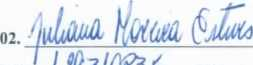 02. Juliana Moreira Esteves